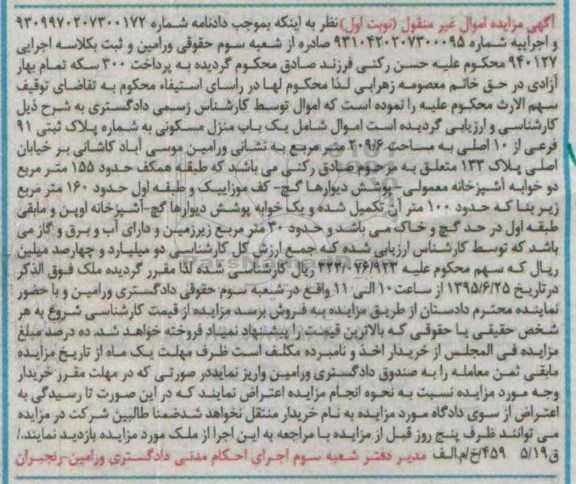 آگهی مزایده اموال غیر منقول (نوبت اول) نظر به اینکه بموجب دادنامه شماره ۹۳۰۹۹۷۰۲۰۷۳۰۰۱۷۲
و اجراییه شماره ۹۳۱۰۴۲۰۲۰۷۳۰۰۰۹۵ صادره از شعبه سوم حقوقی ورامین و ثبت بکلاسه اجرایی
۹۴۰۱۲۷ محکوم علیه حسن رکنی فرزند صادق محکوم گردیده به پرداخت ۳۰۰ سکه تمام بهار
آزادی در حق خانم معصومه زهرایی لذا محکوم لها در راستای استیفاء محکوم به تقاضای توقیف
سهم الارث محکوم علیه را نموده است که اموال توسط کارشناس رسمی دادگستری به شرح ذیل
کارشناسی و ارزیابی گردیده است اموال شامل یک باب منزل مسکونی به شماره پلاک ثبتی ۹۱
فرعی از ۱۰ اصلی به مساحت ۲۰۹/۶ متر مربع به نشانی ورامین موسی آباد کاشانی بر خیابان
اصلی پلاک ۱۳۳ متعلق به مرحوم صادق رکنی می باشد که طبقه همکف حدود ۱۵۵ متر مربع
دو خوابه آشپزخانه معمولی - پوشش دیوارها گچ- کف موزاییک و طبقه اول حدود ۱۶۰ متر مربع
زیر بنا که حدود ۱۰۰ متر آن تکمیل شده و یک خوابه پوشش دیوارها گچ-آشپزخانه اوپن و مابقی
طبقه اول در حد گچ و خاک می باشد و حدود ۳۰ متر مربع زیرزمین و دارای آب و برق و گاز می
باشد که توسط کارشناس ارزیابی شده که جمع ارزش کل کارشناسی دو میلیارد و چهارصد میلین
ریال که سهم محکوم علیه ۳۲۳/۰۷۶/۹۲۳ ریال کارشناسی شده لذا مقرر گردیده ملک فوق الذکر
در تاریخ ۱۳۹۵/۶/۲۵ از ساعت ۱۰ الی ۱۱ واقع در شعبه سوم حقوقی دادگستری ورامین و با حضور
نماینده محترم دادستان از طریق مزایده به فروش برسد مزایده از قیمت کارشناسی شروع به هر
شخص حقیقی یا حقوقی که بالاترین قیمت را پیشنهاد نمیاد فروخته خواهد شد. ده درصد مبلغ
مزایده فی المجلس از خریدار اخذ و نامبرده مکلف است ظرف مهلت یک ماه از تاریخ مزایده
مابقی ثمن معامله را به صندوق دادگستری ورامین واریز نمایددر صورتی که در مهلت مقرر خریدار
وجه مورد مزایده نسبت به نحوه انجام مزایده اعتراض نمایند که در این صورت تا رسیدگی به
اعتراض از سوی دادگاه مورد مزایده به نام خریدار منتقل نخواهد شدضمنا طالبین شرکت در مزایده
می توانند ظرف پنج روز قبل از مزایده با مراجعه به این اجرا از ملک مورد مزایده بازدید نمایند./
ق۵/۱۹ ۴۵۹/خ/م/الف مدیر دفتر شعبه سوم اجرای احکام مدنی دادگستری ورامین-رنجبران